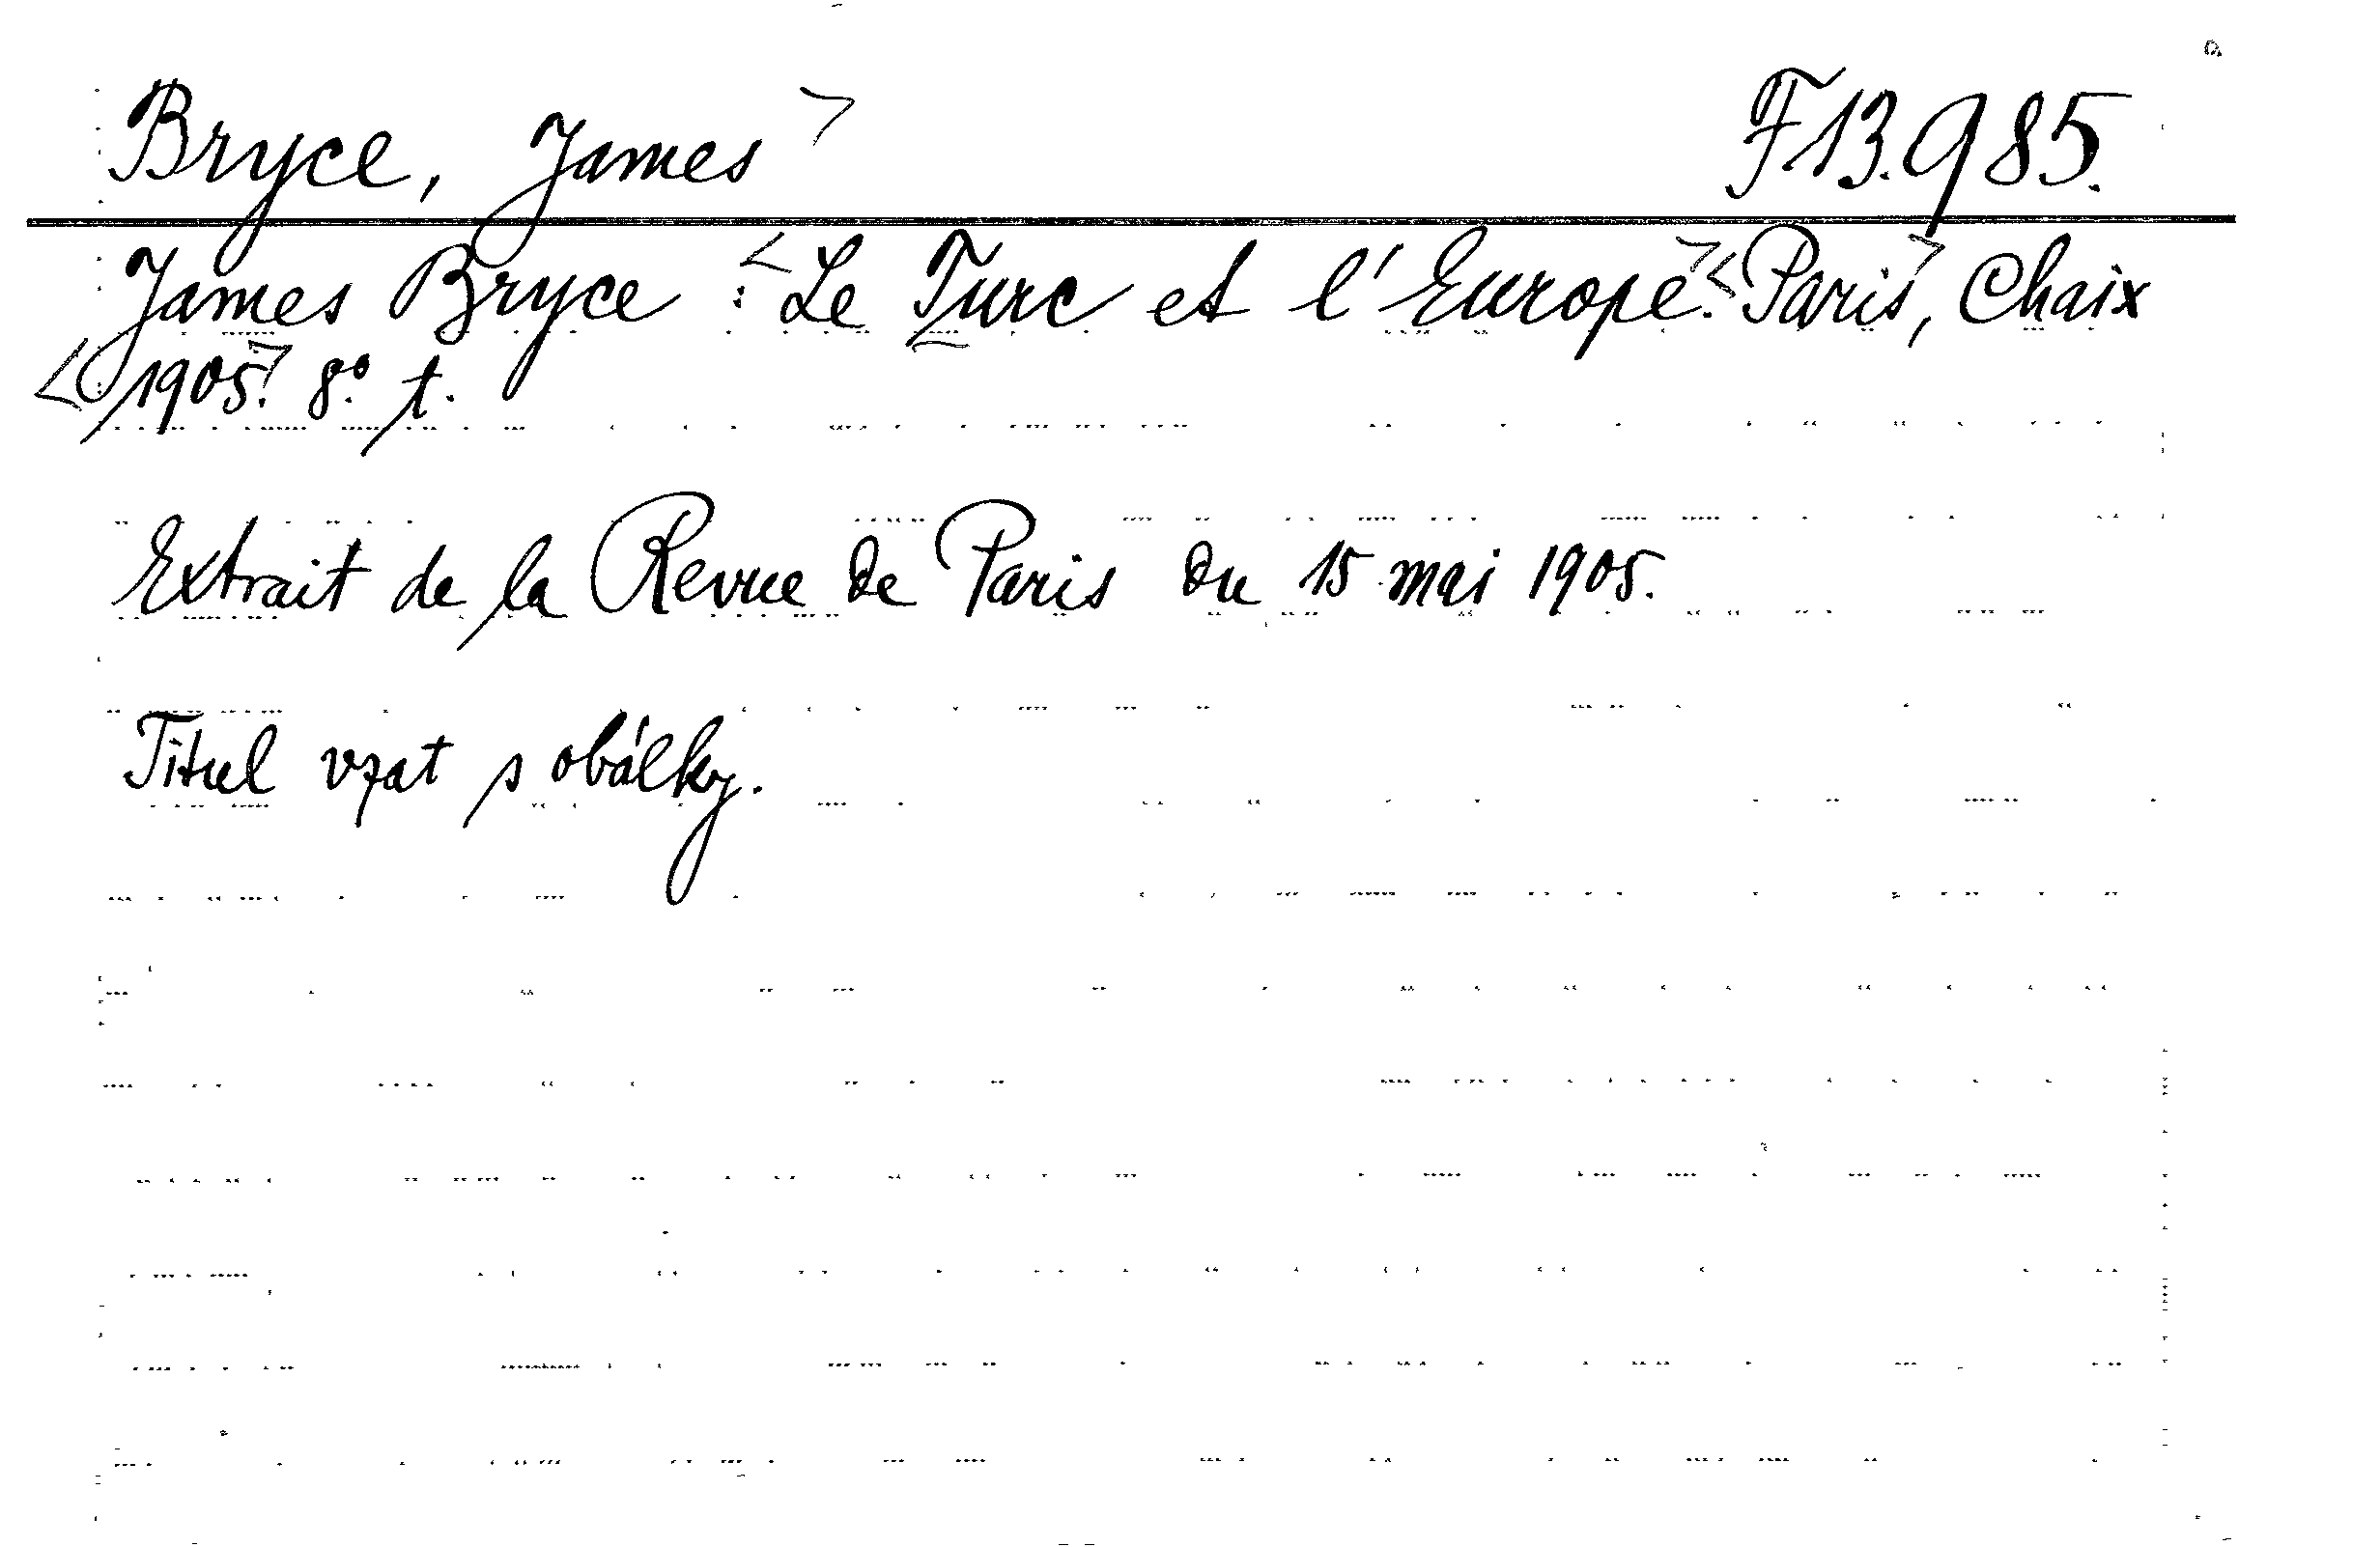 Bryce, James > F 13.985.
James Bryce : <Le Turc et l'Europe.> <Paris>, Chaix
<1905.> 8°. t.
Extrait de la Revue de Paris du 15 mai 1905.
Titul vzat s obálky.